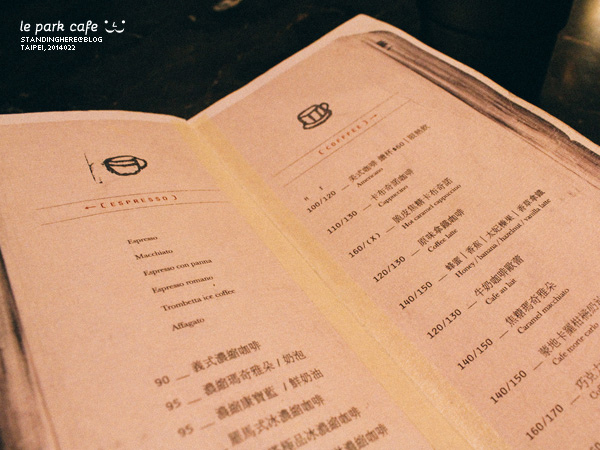 le park cafe
STANDINGHERE@BLOG
TAIPEI, 2014022
← [ESPRESSO }
Espresso
Macchiato
Espresso con panna
Espresso romano
Trombetta ice coffee
Affagato
90 — 義式濃縮咖啡
95 — 濃縮瑪奇雅朵 / 奶泡
95 — 濃縮康寶藍 / 鮮奶油
羅馬式冰濃縮咖啡
冰濃縮咖啡
{COFFEE} →
100/120 — 美式咖啡 續杯$60 | 限熱飲
Americano
110/130 — 卡布奇諾咖啡
Cappuccino
160/(X) — 脆皮焦糖卡布奇諾
Hot caramel cappuccino
120/130 — 原味拿鐵咖啡
Coffee latte
140/150 — 蜂蜜 | 香蕉 | 太妃榛果 | 香草拿鐵
Honey / banana / hazelnut / vanilla latte
120/130 — 牛奶咖啡歐蕾
Cafe au lait
140/150 — 焦糖瑪奇雅朵
Caramel macchiato
140/150 — 蒙地卡羅柑橘奶油
Cafe monte carlo
160/170 — 巧克力